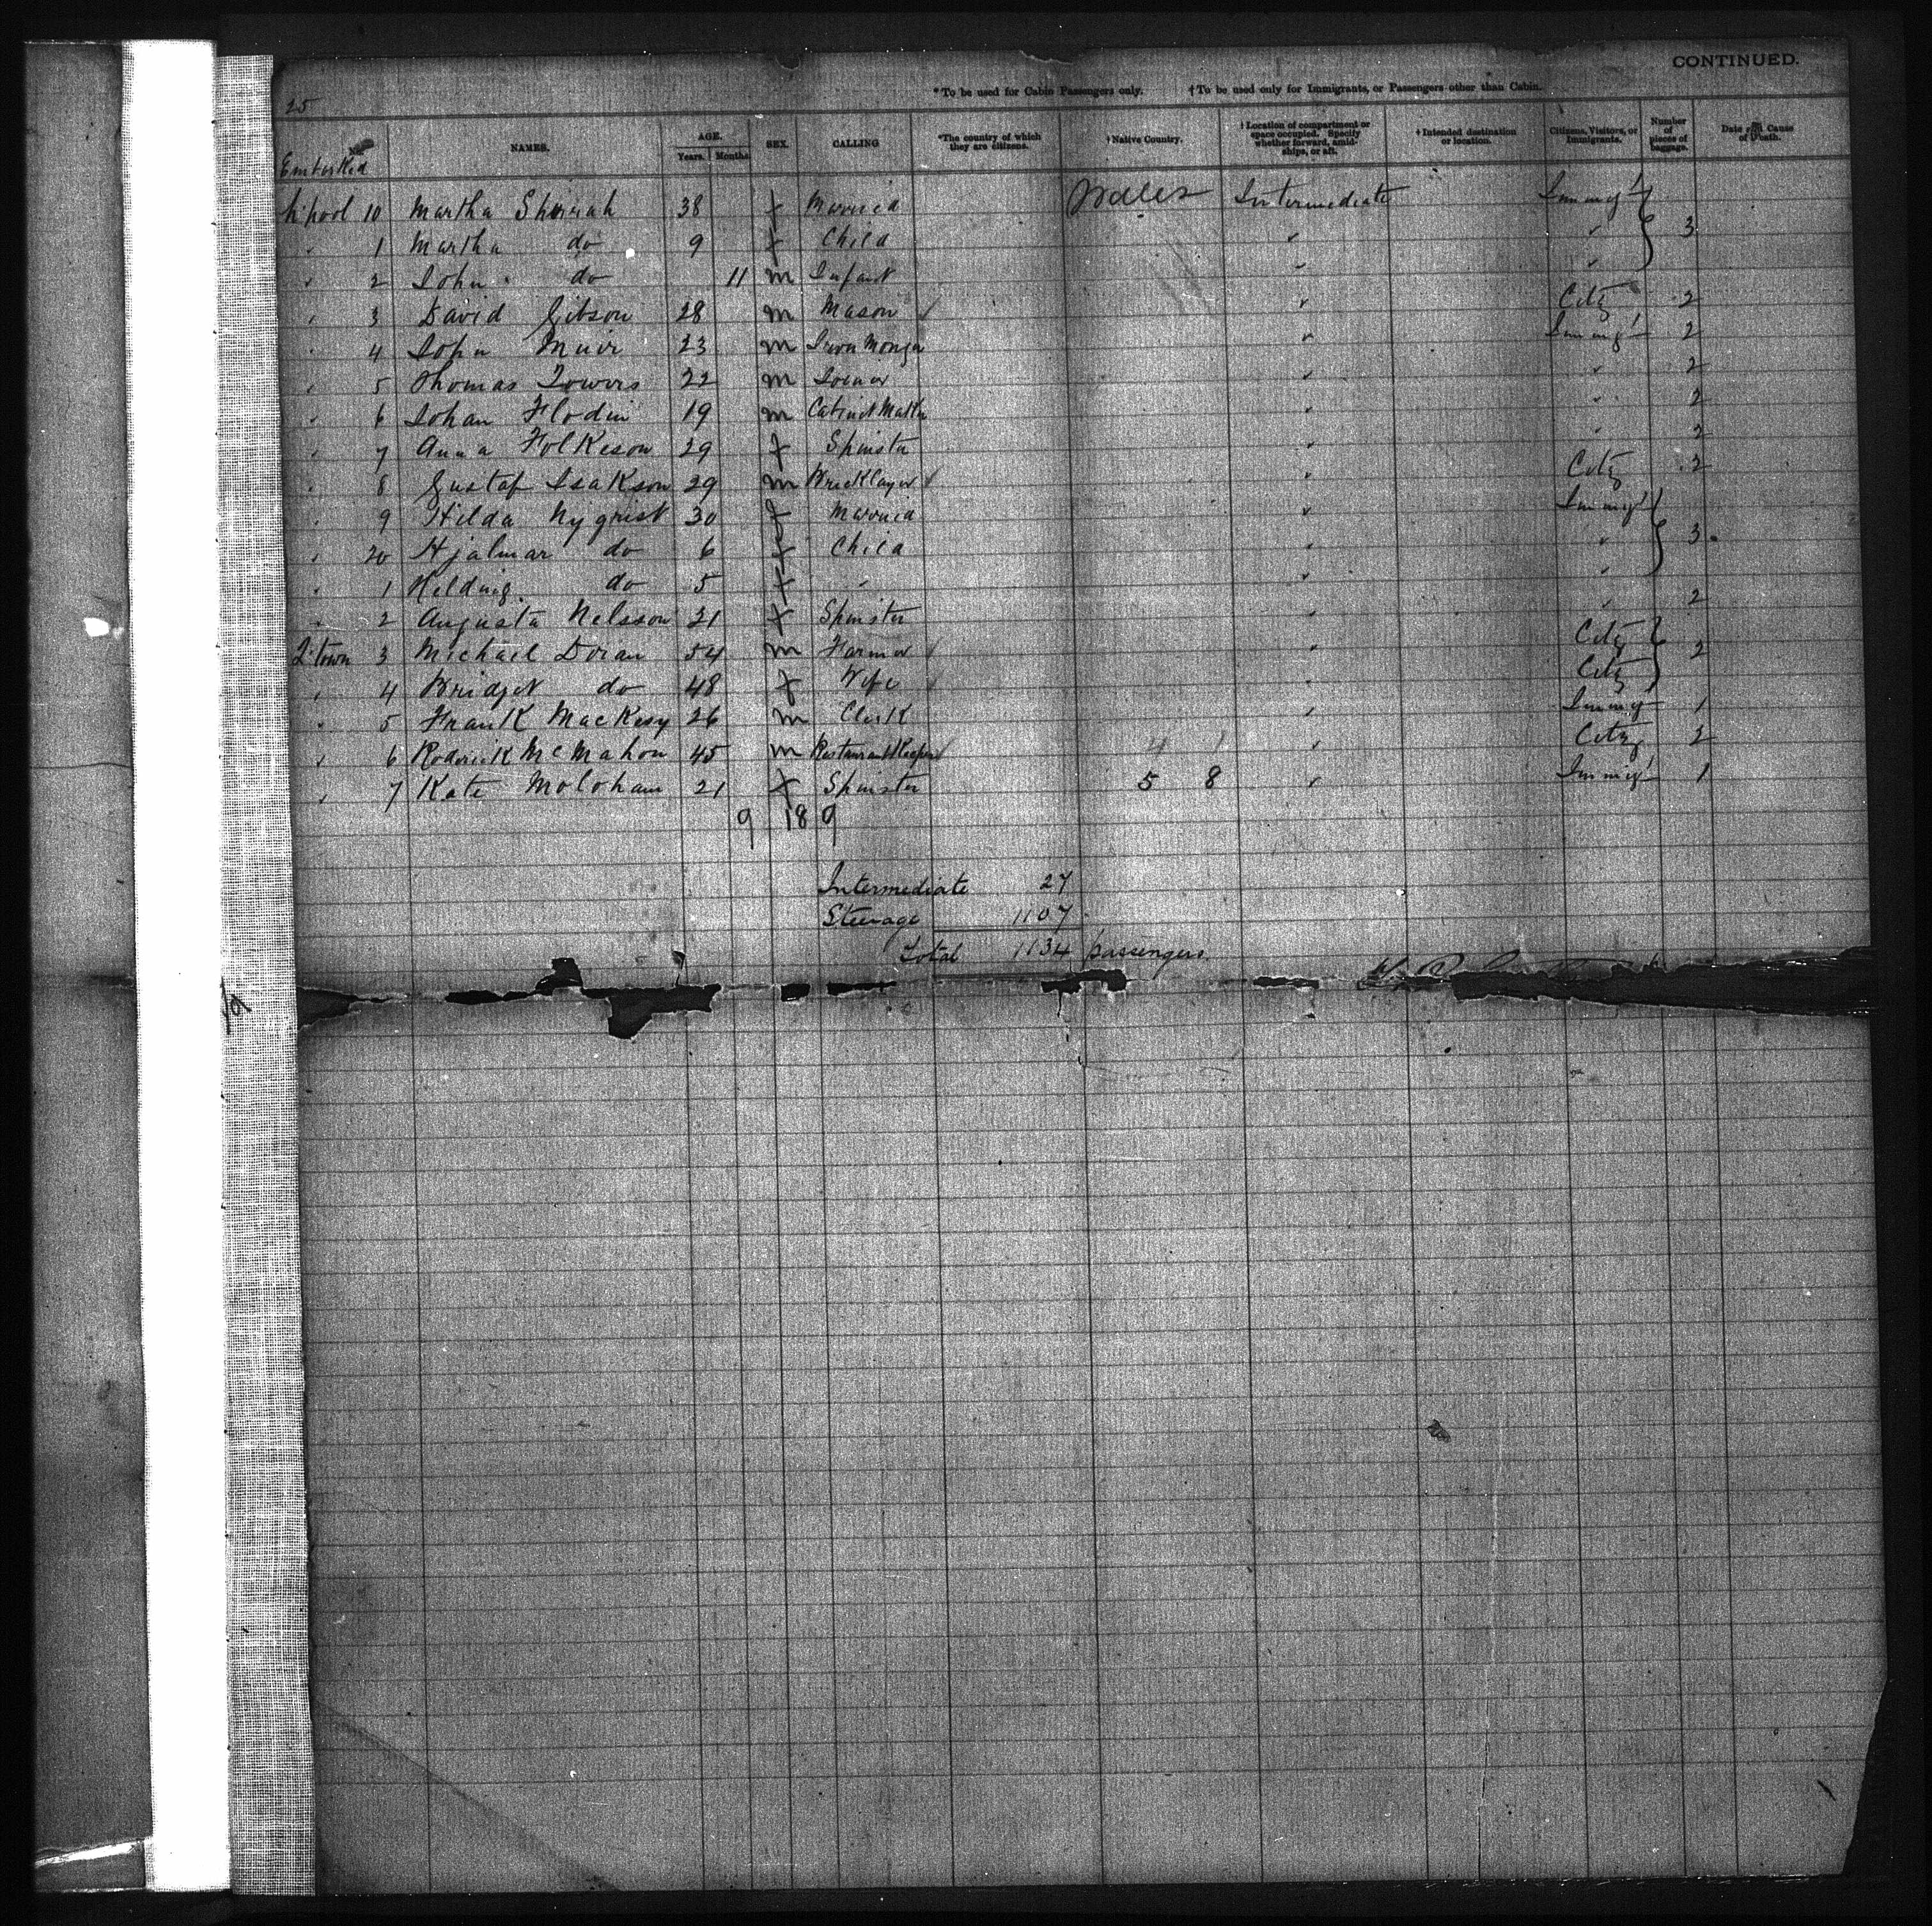 CONTINUED.
*To be used for Cabin Passengers only. †To be used only for Immigrants, or Passengers other than Cabin.
25
Embarked No NAMES. AGE. Years. Months SEX. CALLING *The country of which they are citizens. †Native Country. †Location of compartment or space occupied. Specify whether forward, amidships, or aft. †Intended destination or location. Citizens, Visitors, or Immigrants. Number of pieces of baggage. Date and Cause of Death.
L'pool 10 Martha 38 f Married Wales Intermediate Immigt
" 1 Martha do 9 f Child " " 3
" 2 John do 11 m Infant " "
" 3 David Gibson 28 m Mason " City 2
" 4 John Muir 23 m Iron Monger " Immigt 2
" 5 Thomas Towers 22 m Joiner " " 2
" 6 Johan Flodin 19 m Cabinet Maker " " 2
" 7 Anna Folkeson 29 f Spinster " " 2
" 8 Gustaf Isakson 29 m Bricklayer " City 2
" 9 Hilda Nyqrist 30 f Married " Immigt
" 20 Hjalmar do 6 f Child " " 3
" 1 Helding do 5 f " " "
" 2 Augusta Nelsson 21 f Spinster " " 2
Q'town 3 Michael Doran 54 m Farmer " City 2
" 4 Bridget do 48 f Wife " City
" 5 Frank MacKesy 26 m Clerk " Immigt 1
" 6 Roderick McMahon 45 m Restaurant Keeper 4 1 " City 2
" 7 Kate Moloham 21 f Spinster 5 8 " Immigt 1
9 18 9
Intermediate 27
Steerage 1107
Total 1134 passengers.